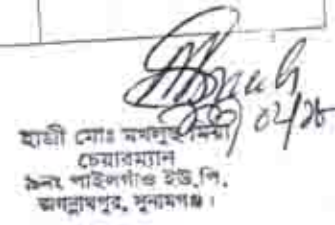 ০২/২৮
হাজী মোঃ মখলুছ মিয়া
চেয়ারম্যান
৯নং পাইলগাঁও ইউ,পি,
জগন্নাথপুর, সুনামগঞ্জ।